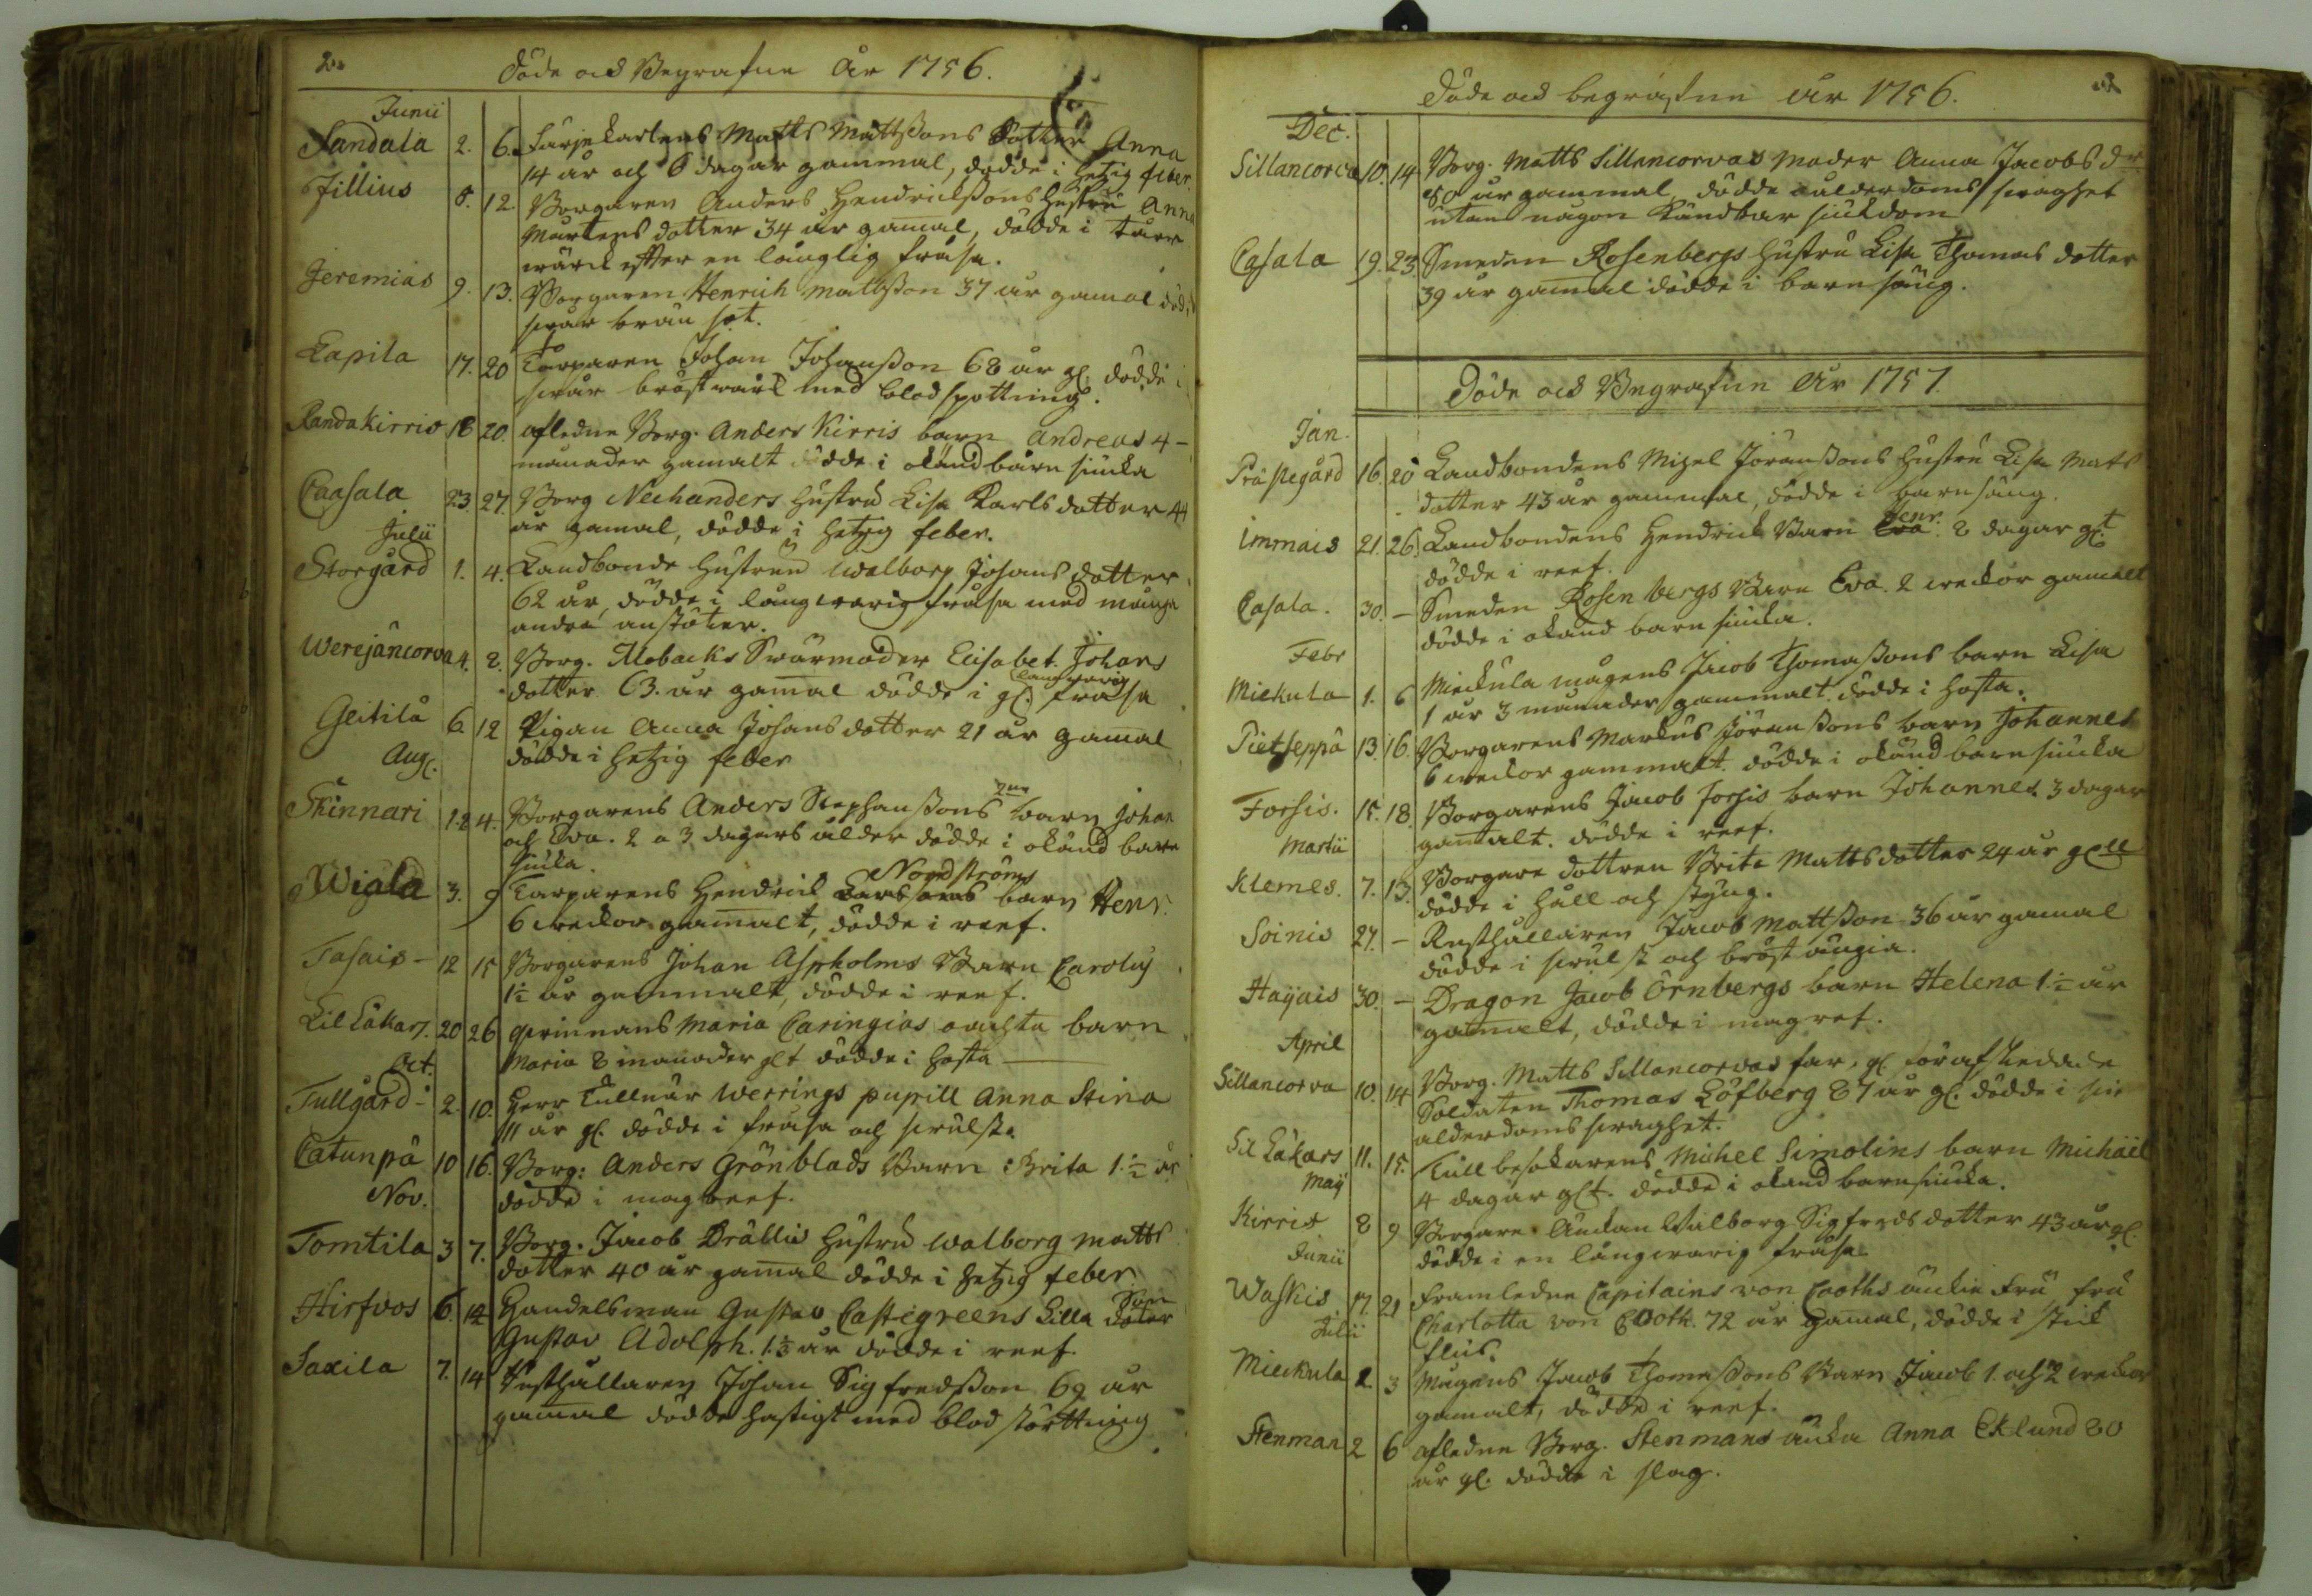 Döde och Begrafne År 1756.
Junii
Sandala 2. 6. Färjekarlens Matts Mattssons Dotter Anna
14 år och 6 dagar gammal, dödde i hetzig feber.
Fillius 8. 12. Borgaren Anders Hendrickssons hustru Anna
Mårtens dotter 34 år gamal, dödde i
wärck efter en långlig fråsa.
Jeremias 9. 13. Borgaren Henrich Mattsson 37 år gamal död. i
swår brän sot.
Lapila 17. 20 Torparen Johan Johansson 68 år gl. dödde i
swår bröstwärk med blodspottning.
Randakirris 18 20. afledne Borg. Anders Kirris barn Andreas 4
månader gamalt dödde i okänd barn siuka
Caasala 23. 27. Borg Neehanders hustru Lisa Karls dotter 44
år gamal, dödde i hetzig feber.
Julii
Storgård 1. 4. Landbonde hustrun Walborg Johans dotter
62 år, dödde i långwarig fråsa med många
andra anstöter.
Werejäncorva 4. 8. Borg. Mobacks Swärmoder Elisabet Johans
dotter 63. år gamal dödde i långwarig fråsa
Geitilä 6. 12 Pigan Anna Johans dotter 21 år gamal
dödde i hetzig feber
Aug.
Skinnari 1.2 4. Borgarens Anders Stephanssons 2ne barn Johan
och Eva. 2 a 3 dagars ålder dödde i okänd barn
siuka.
Wiala 3. 9 Torparens Hendrick Nordströms barn Henr.
6 weckor gamalt, dödde i reef.
Tasais 12 15 Borgarens Johan Aspholms Barn Carolus
1½ år gammalt, dödde i reef.
Lil Läkars. 20 26 qwinnans Maria Caringias oächta barn
Maria 8 månader glt dödde i hosta
Oct.
Tullgård 2. 10. Herr Tullnär Werrings pupill Anna Stina
11 år gl. dödde i fråsa och swulst.
Catunpä 10 16. Borg: Anders Grönblads Barn Brita 1½ år
dödde i magreef.
Nov.
Tomtila 3 7. Borg. Jacob Drällis hustru Walborg Matts
dotter 40 år gamal dödde i hetzig feber
Hirfvos 6. 14 Handelsman Gustav Castegreens Lilla Son
Gustav Adolph. 1½ år dödde i reef.
Saxila 7. 14 Rusthållaren Johan Sigfredsson 69 år
gamal dödde hastigt med blod störttning
Döde och begrafne år 1756.
Dec.
Sillancorva 10. 14 Borg. Matts Sillancorvas moder Anna Jacobs dr
80 år gammal dödde ålderdoms swaghet
utan någon kändbar siukdom
Casala 19. 23 Smeden Rosenbergs hustru Lisa Thomas dotter
39 år gammal dödde i barnsäng.
Döde och Begrafne År 1757.
Jan.
Prästegård 16. 20 Landbondens Mizel Jöranssons hustru Lisa Mats
dotter 43 år gammal, dödde i barnsäng.
Immais 21. 26. Landbondens Hendrick Barn Henr. 8 dagar glt
dödde i reef.
Casala. 30. – Smeden Rosenbergs Barn Eva. 2 weckor gamalt
dödde i okänd barn siuka.
Febr
Mickula 1. 6 Mickula mågens Jacob Thomassons barn Lisa
1 år 3 månader gammalt. dödde i hosta.
Pietseppä 13. 16. Borgarens Markus Jöranssons barn Johannes
6 weckor gammalt. dödde i okänd barnsiuka
Forsis. 15. 18. Borgarens Jacob Forsis barn Johannes 3 dagar
gamalt. dödde i reef.
Martii
Klemes. 7. 13. Borgare dottren Brita Mattsdotter 24 år gl
dödde i håll och styng.
Soinis 27. – Rusthållaren Jacob Mattsson 36 år gamal
dödde i swulst och bröst
Haijais 30. – Dragon Jacob Örnbergs barn Helena 1½ år
gamalt, dödde i magref.
April
Sillancorva 10. 14 Borg. Matts Sillancorvas far, gl. för afskedade
Soldaten Thomas Löfberg 87 år gl. dödde i sin
ålderdoms swaghet.
Lil Läkars 11. 15. Tull besökarens Michel Simolins barn Michäel
4 dagar glt. dödde i okänd barnsiuka.
Maij
Kirris 8 9 Borgare Änckan Walborg Sigfreds dotter 43 år gl.
dödde i en långwarig fråsa
Junii
Waskis 17. 21 Framledne Capitains von Cooths änkie fru fru
Charlotta von Cooth. 72 år gamal, dödde i stick
flus.
Julii
Mickula 2. 3 Mågens Jacob Thomassons Barn Jacob 1. och 2 weckor
gamalt, dödde i reef.
Stenman 2 6 afledne Borg. Stenmans änka Anna Eklund 80
år gl. dödde i slag.